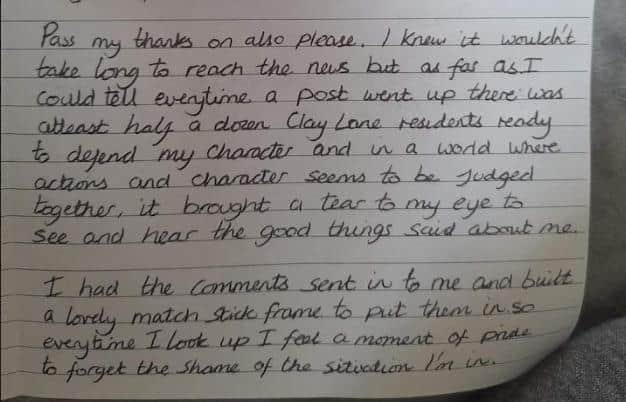 Pass my thanks on also please. I knew it wouldn't
take long to reach the news but as far as I
could tell everytime a post went up there was
atleast half a dozen Clay Lane residents ready
to defend my character and in a world where
actions and character seems to be Judged
together, it brought a tear to my eye to
see and hear the good things said about me.
I had the comments sent in to me and built
a lovely match stick frame to put them in so
everytime I look up I feel a moment of pride
to forget the shame of the situation I'm in.